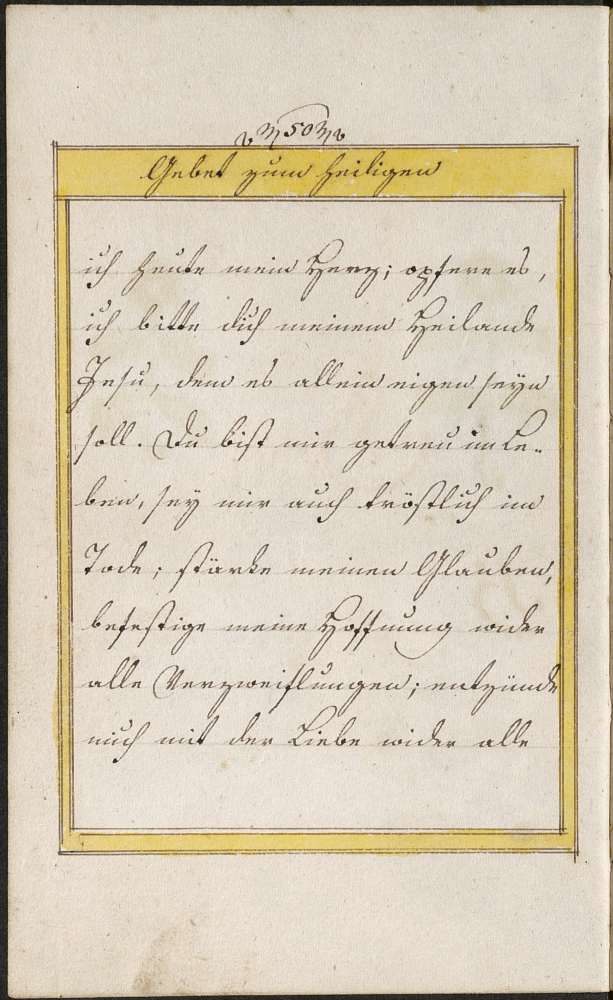 50
Gebet zum heiligen
ich heute mein Herz; opfere es,
ich bitte dich meinem Heilande
Jesu, dem es allein eigen seyn
soll. Du bist mir getreu im Le-
ben, sey mir auch tröstlich im
Tode; stärke meinen Glauben,
befestige meine Hoffnung wider
alle Verzweiflungen; entzünde
mich mit der Liebe wider alle